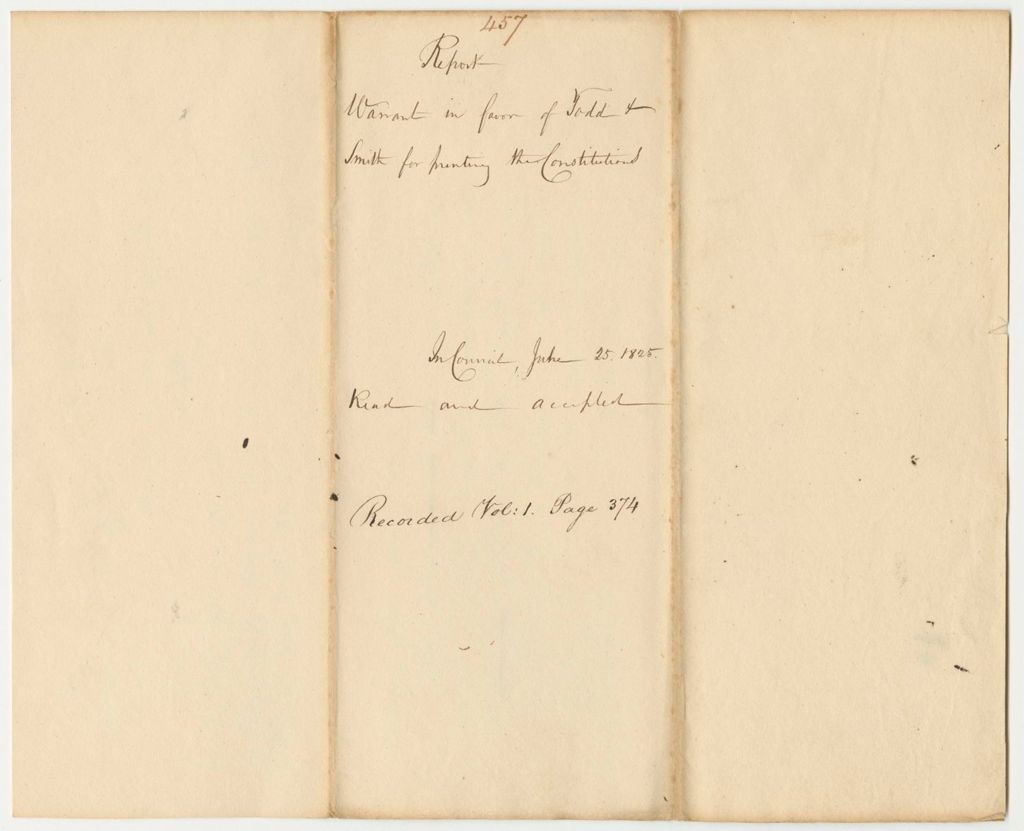 457
Report
Warrant in favor of Todd &
Smith for printing the Constitutions
In Council, June 25. 1825.
Read and accepted
Recorded Vol: 1. Page 374